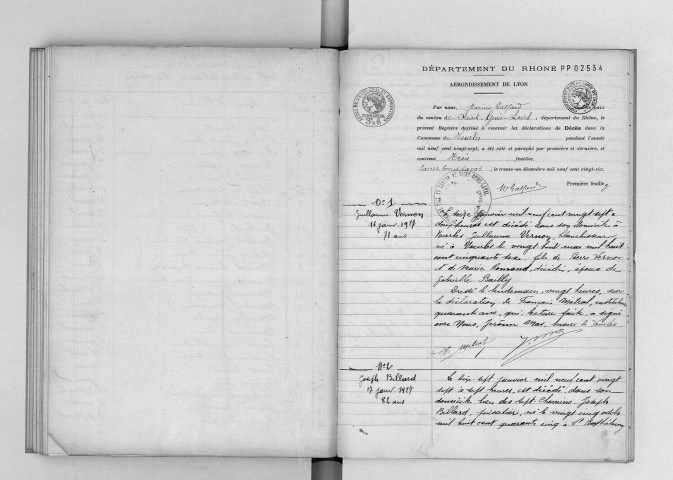 DÉPARTEMENT DU RHONE PP 02534
ARRONDISSEMENT DE LYON
Par nous, Marius Calfard
du canton de Saint-Genis-Laval, département du Rhône, le
présent Registre destiné à recevoir les déclarations de Décès dans la
Commune de Vourles pendant l'année
mil neuf cent vingt-sept, a été coté et paraphé par première et dernière, et
contient trois feuilles.
Saint-Genis-Laval, le trente-un décembre mil neuf cent vingt-six.
Première feuille
No 1
Guillaume Vernon
16 janv. 1927
71 ans
Le seize janvier mil neuf cent vingt sept à
heures est décédé en son domicile à
Vourles Guillaume Vernon, blanchisseur
né à Vourles le vingt huit mai mil huit
cent cinquante, fils de Pierre Vernon
et de Marie, décédés, époux de
Gabrielle Bailly
Dressé le lendemain, vingt heures, sur
la déclaration de François Métral, instituteur
quarante ans, qui, lecture faite, a signé
avec Nous, Jérôme Mas, maire de Vourles
F. Métral
No 2
Joseph Billard
17 janv. 1927
82 ans
Le dix-sept janvier mil neuf cent vingt
sept à sept heures, est décédé, dans son
domicile lieu des Sept Chemins, Joseph
Billard, né le vingt cinq
mil huit cent quarante cinq à St